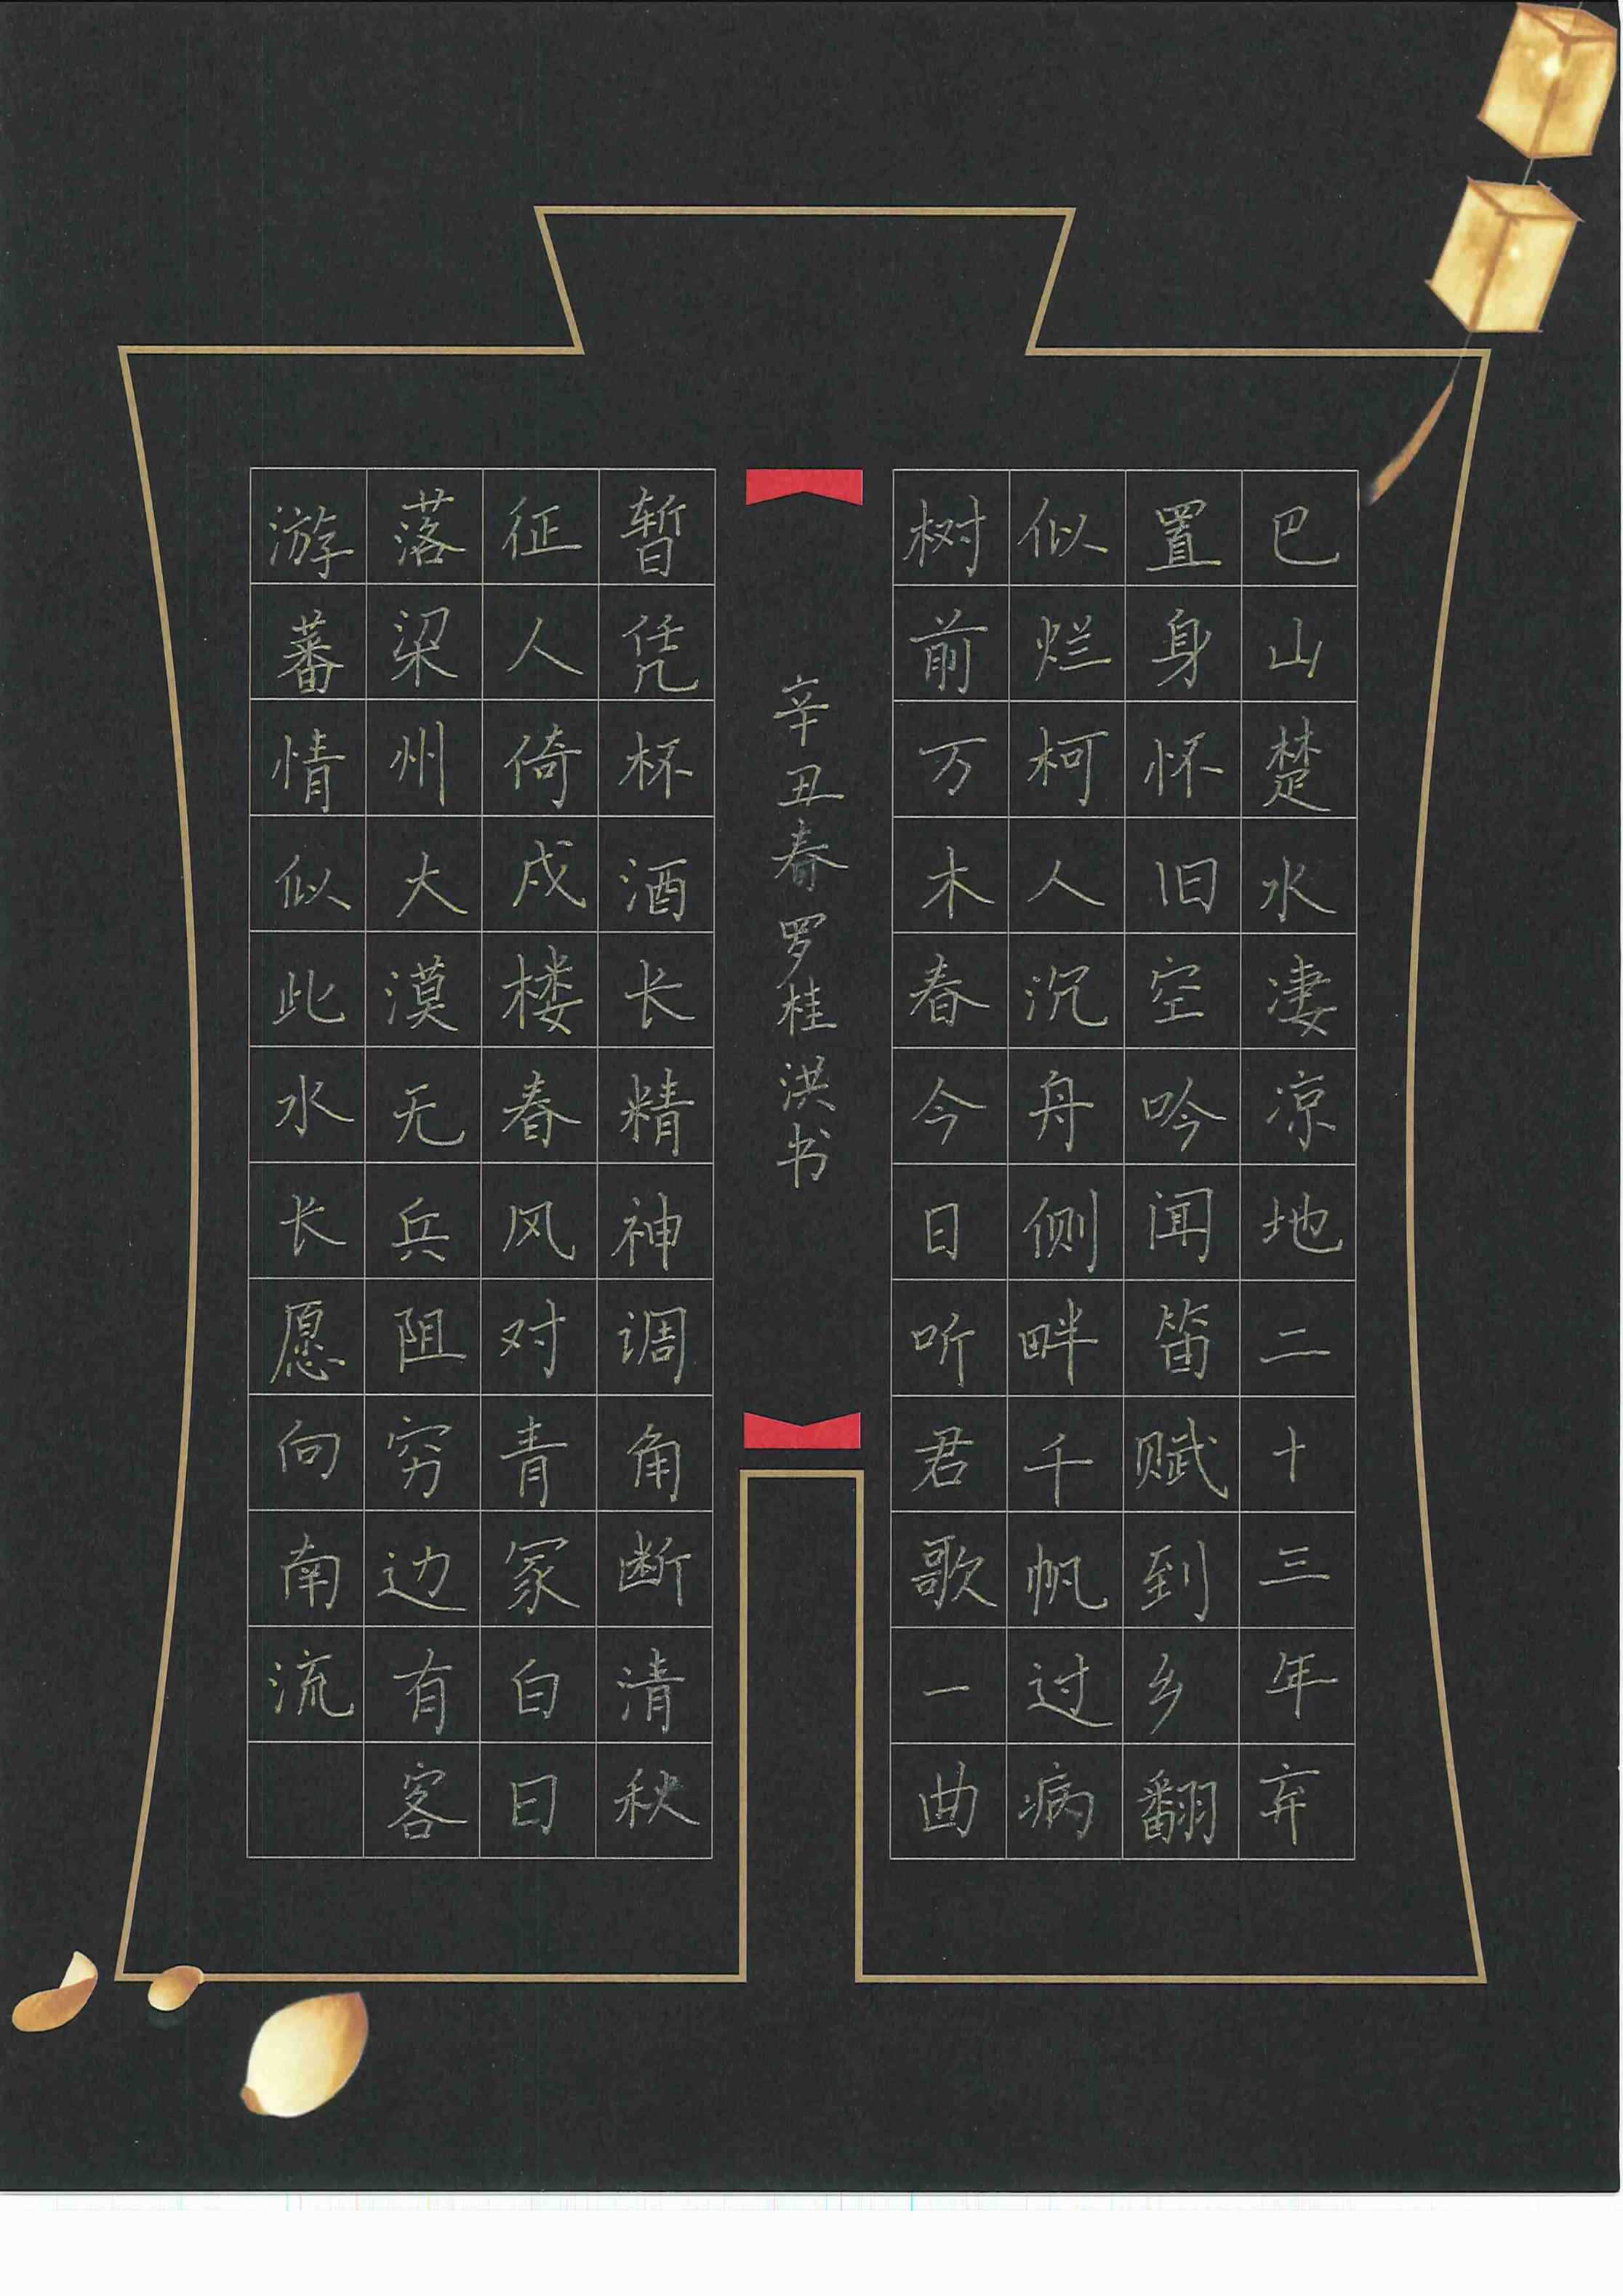 巴山楚水凄凉地二十三年弃
置身怀旧空吟闻笛赋到乡翻
似烂柯人沉舟侧畔千帆过病
树前万木春今日听君歌一曲
辛丑春罗桂洪书
暂凭杯酒长精神调角断清秋
征人倚戍楼春风对青冢白日
落梁州大漠无兵阻穷边有客
游蕃情似此水长愿向南流